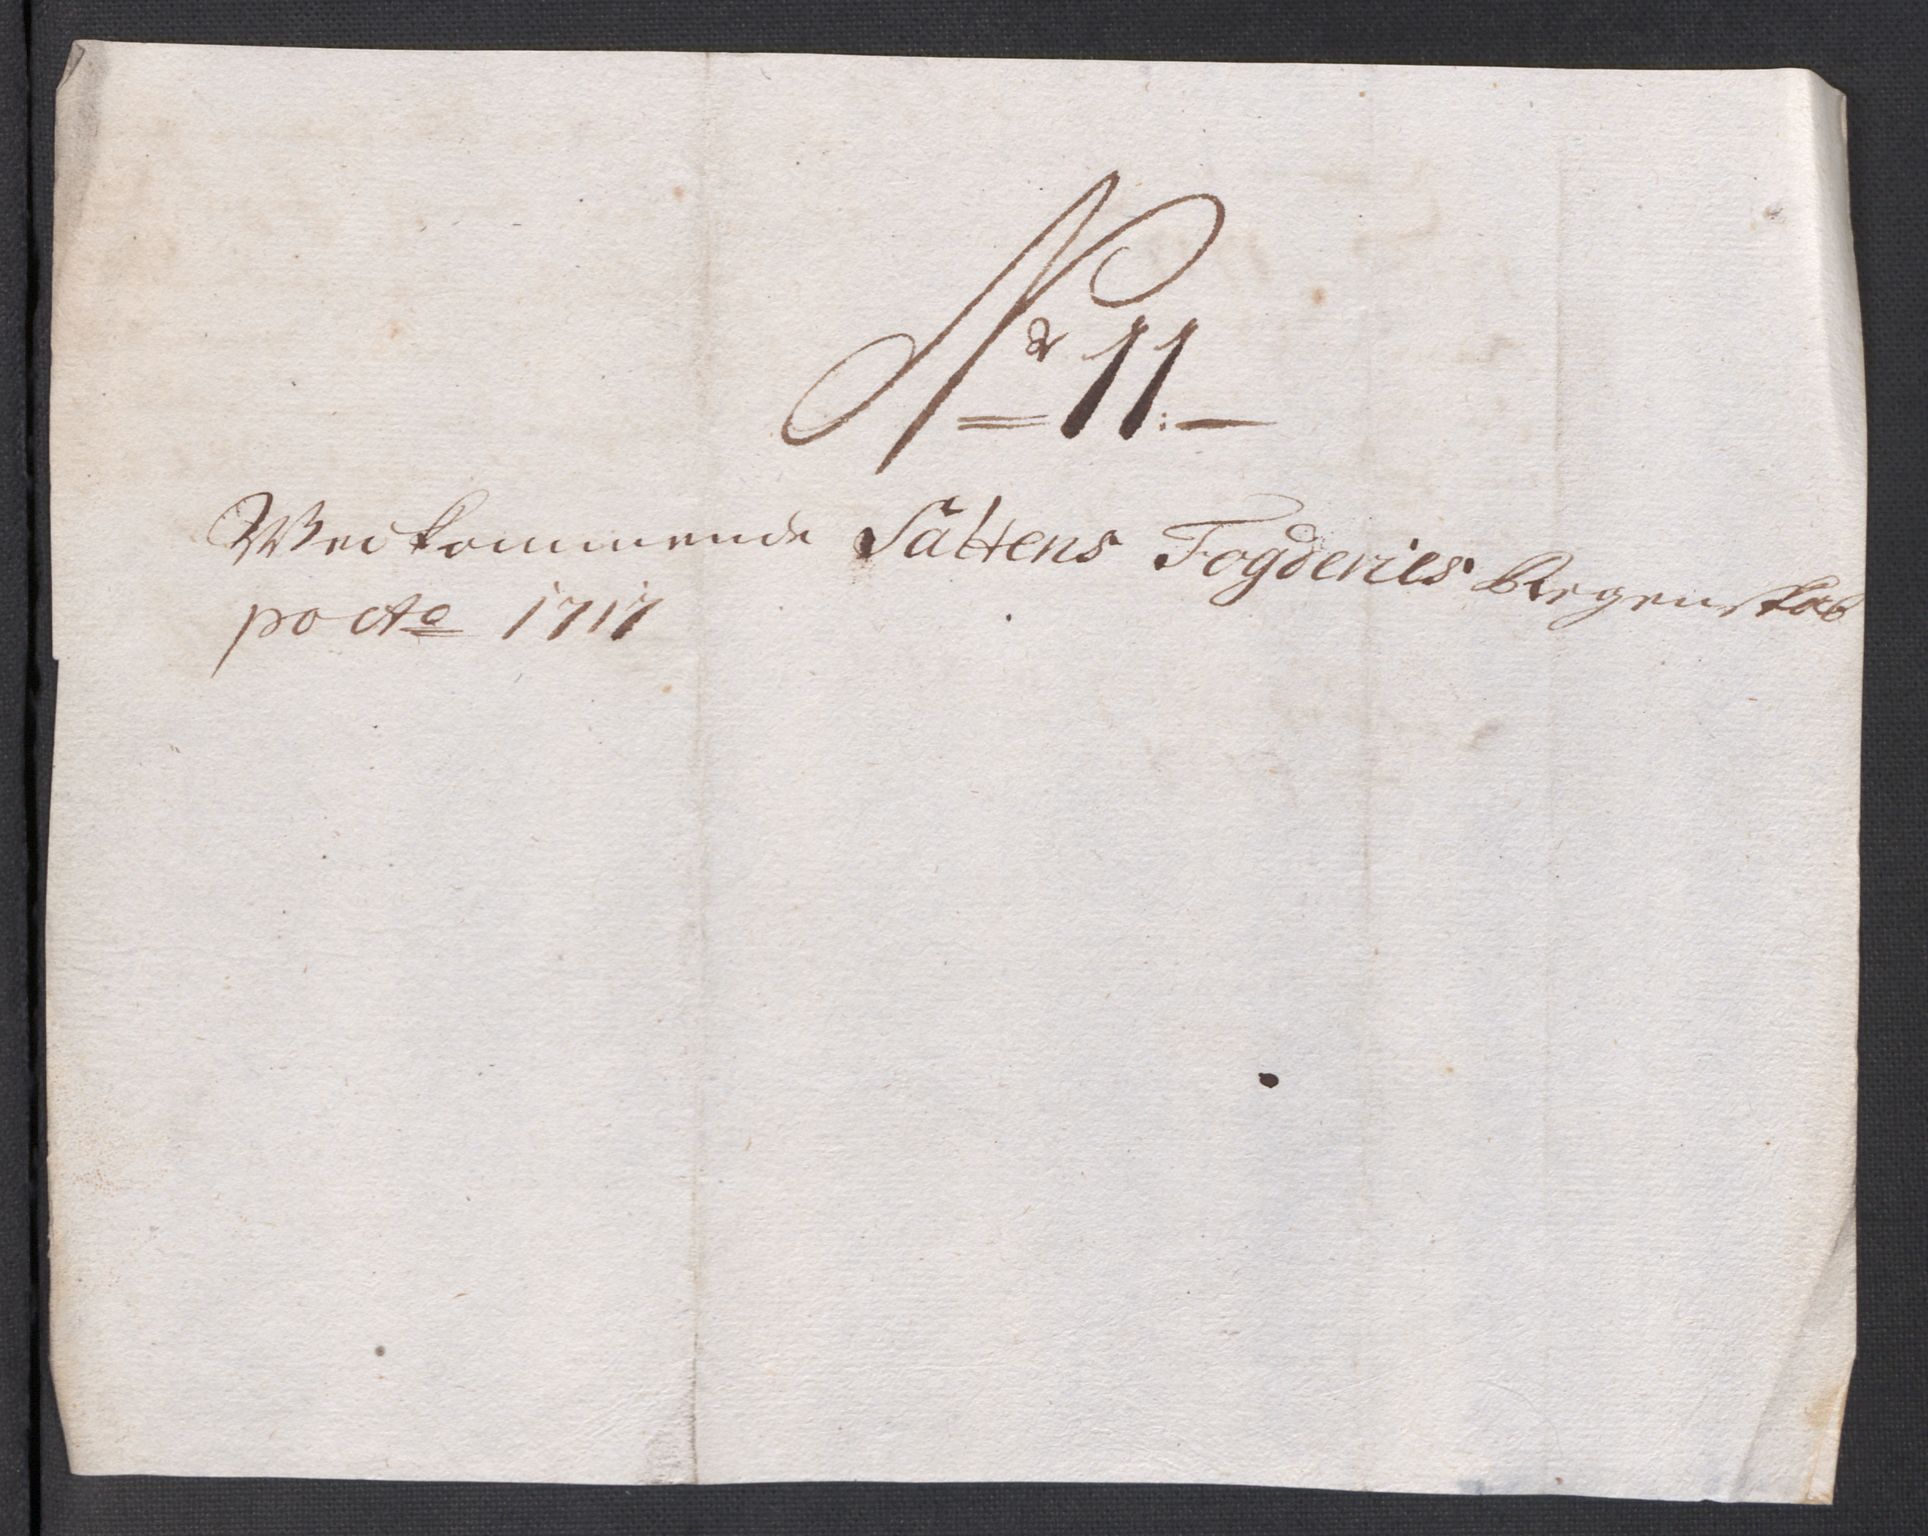 Nr 11:
Vedkommende Saltens Fogderies Regenskab
po Ao 1717